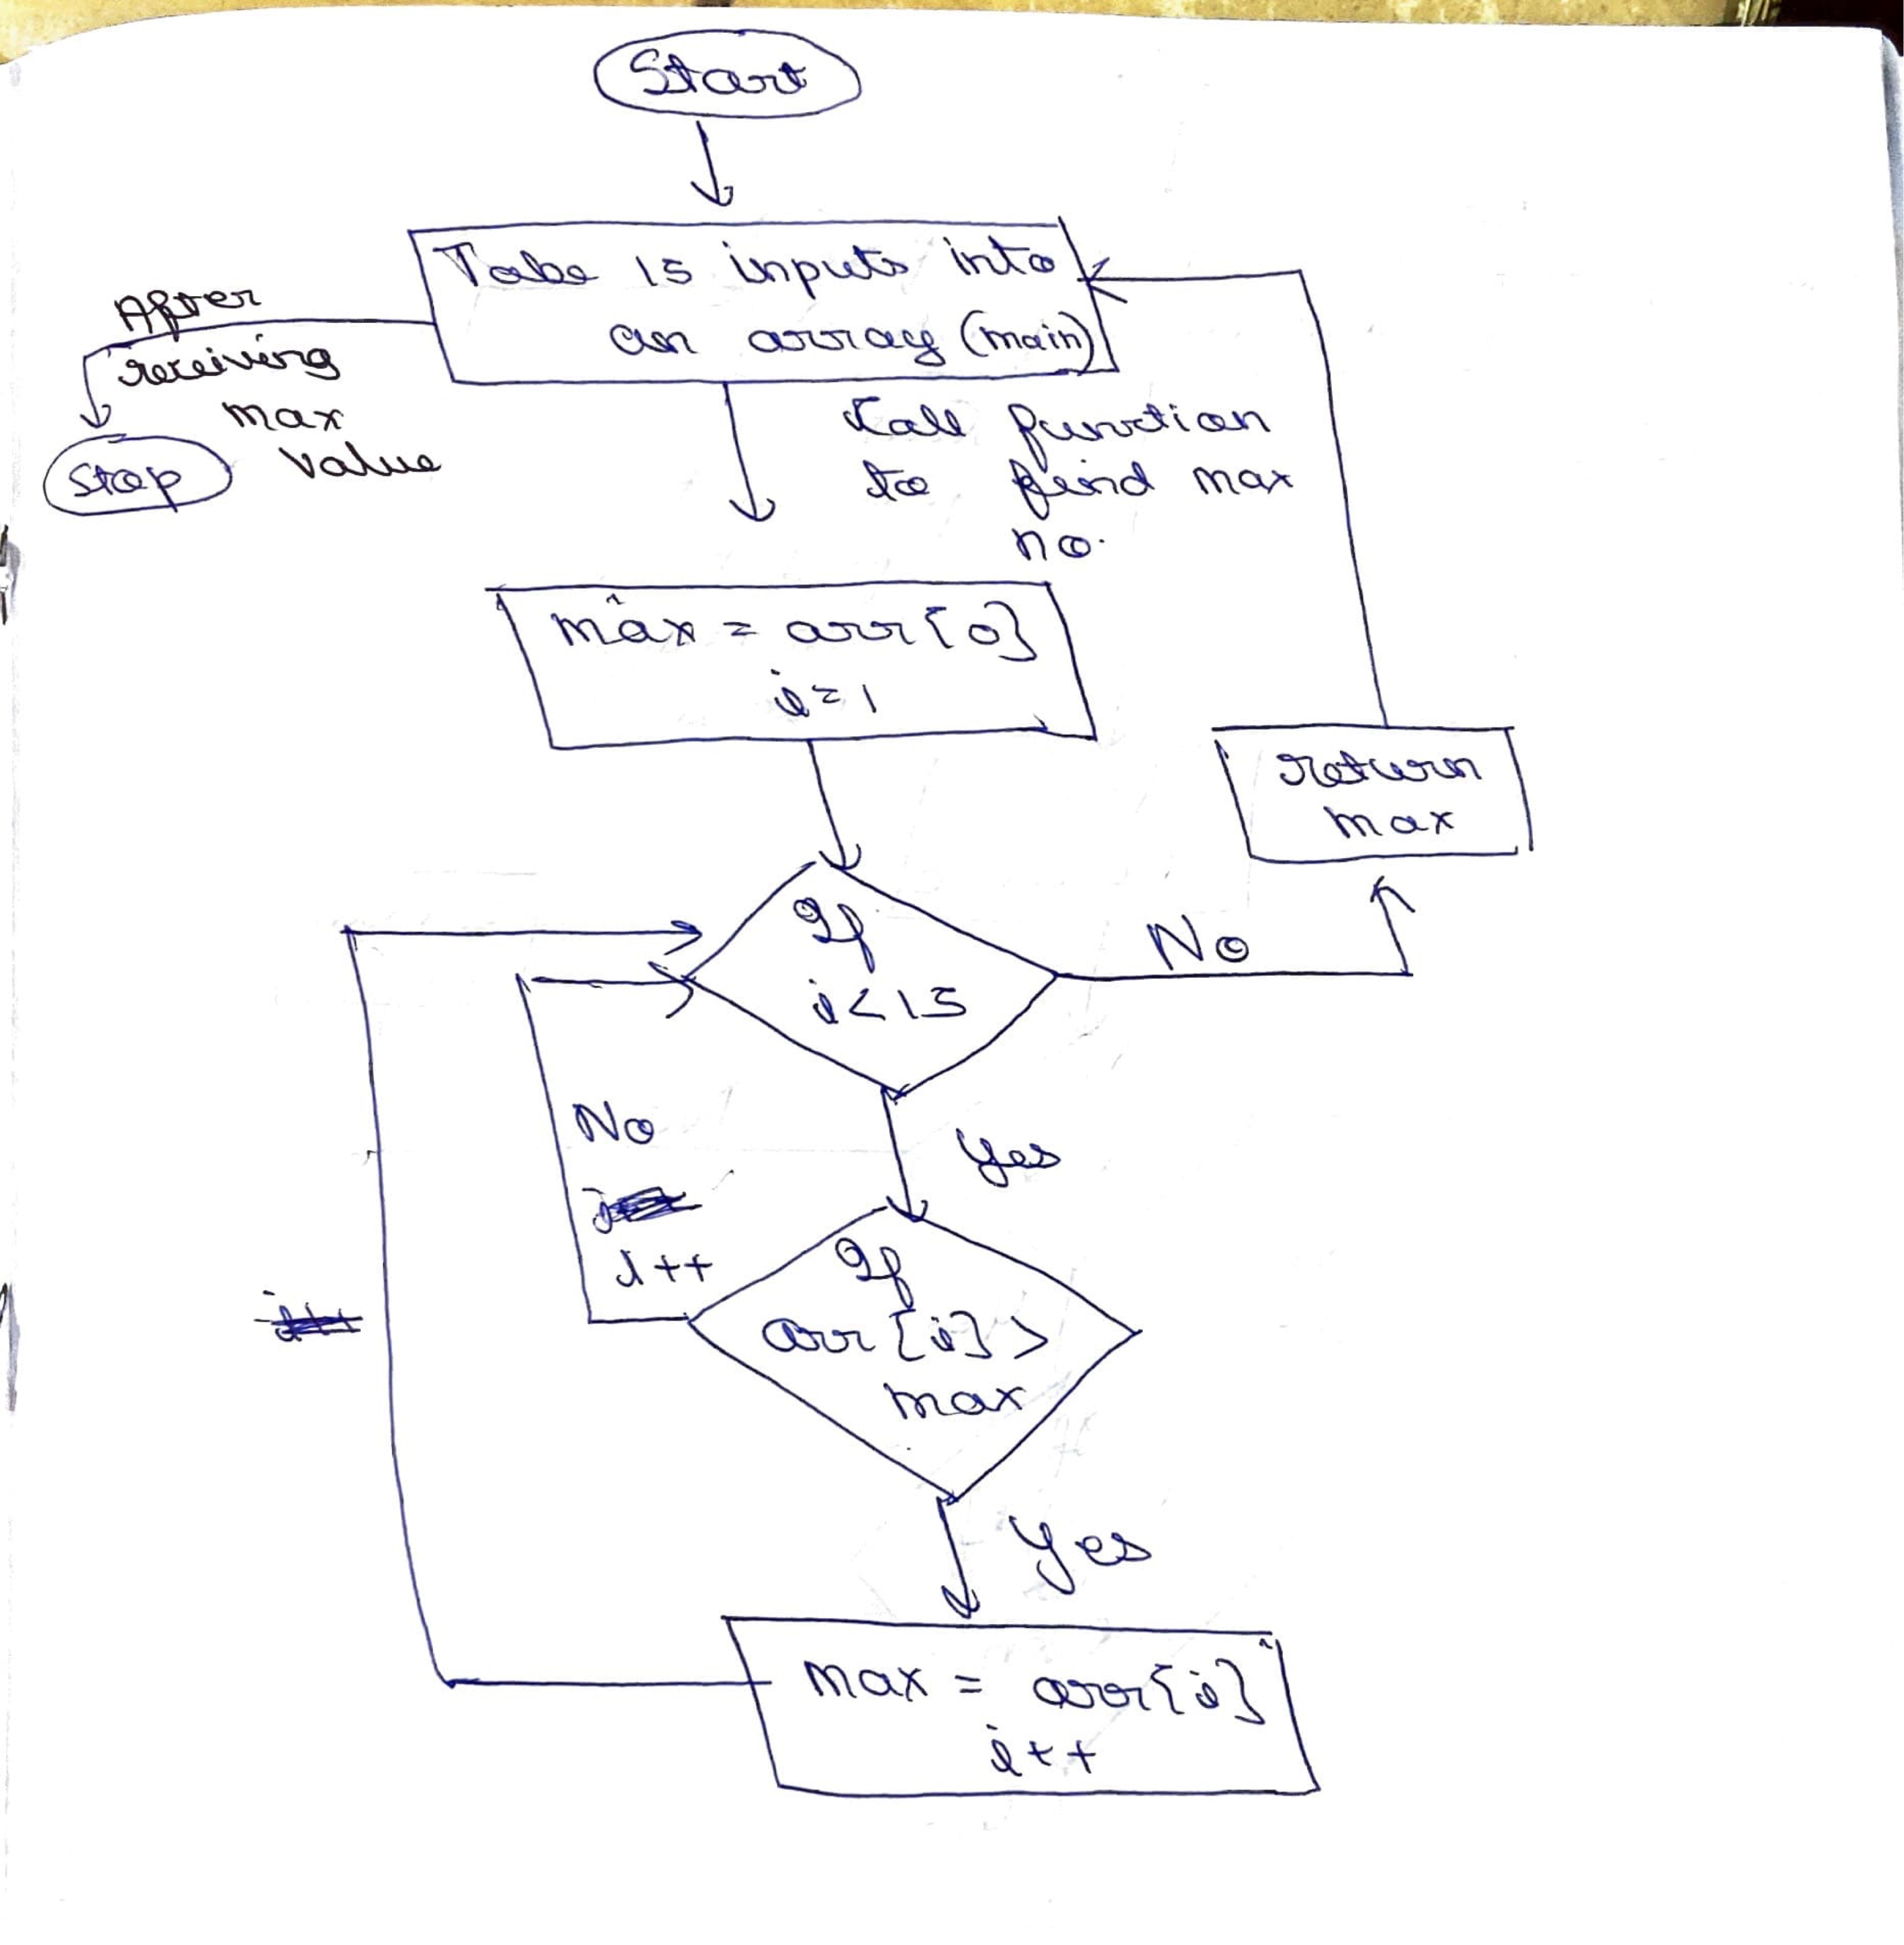 Start
Take 15 inputs into
an array (main)
After
receiving
max
value
Stop
Call function
to find max
no.
max = arr[0]
i=1
return
max
If
i<15
No
Yes
No
i++
If
arr[i]>
max
Yes
max = arr[i]
i++